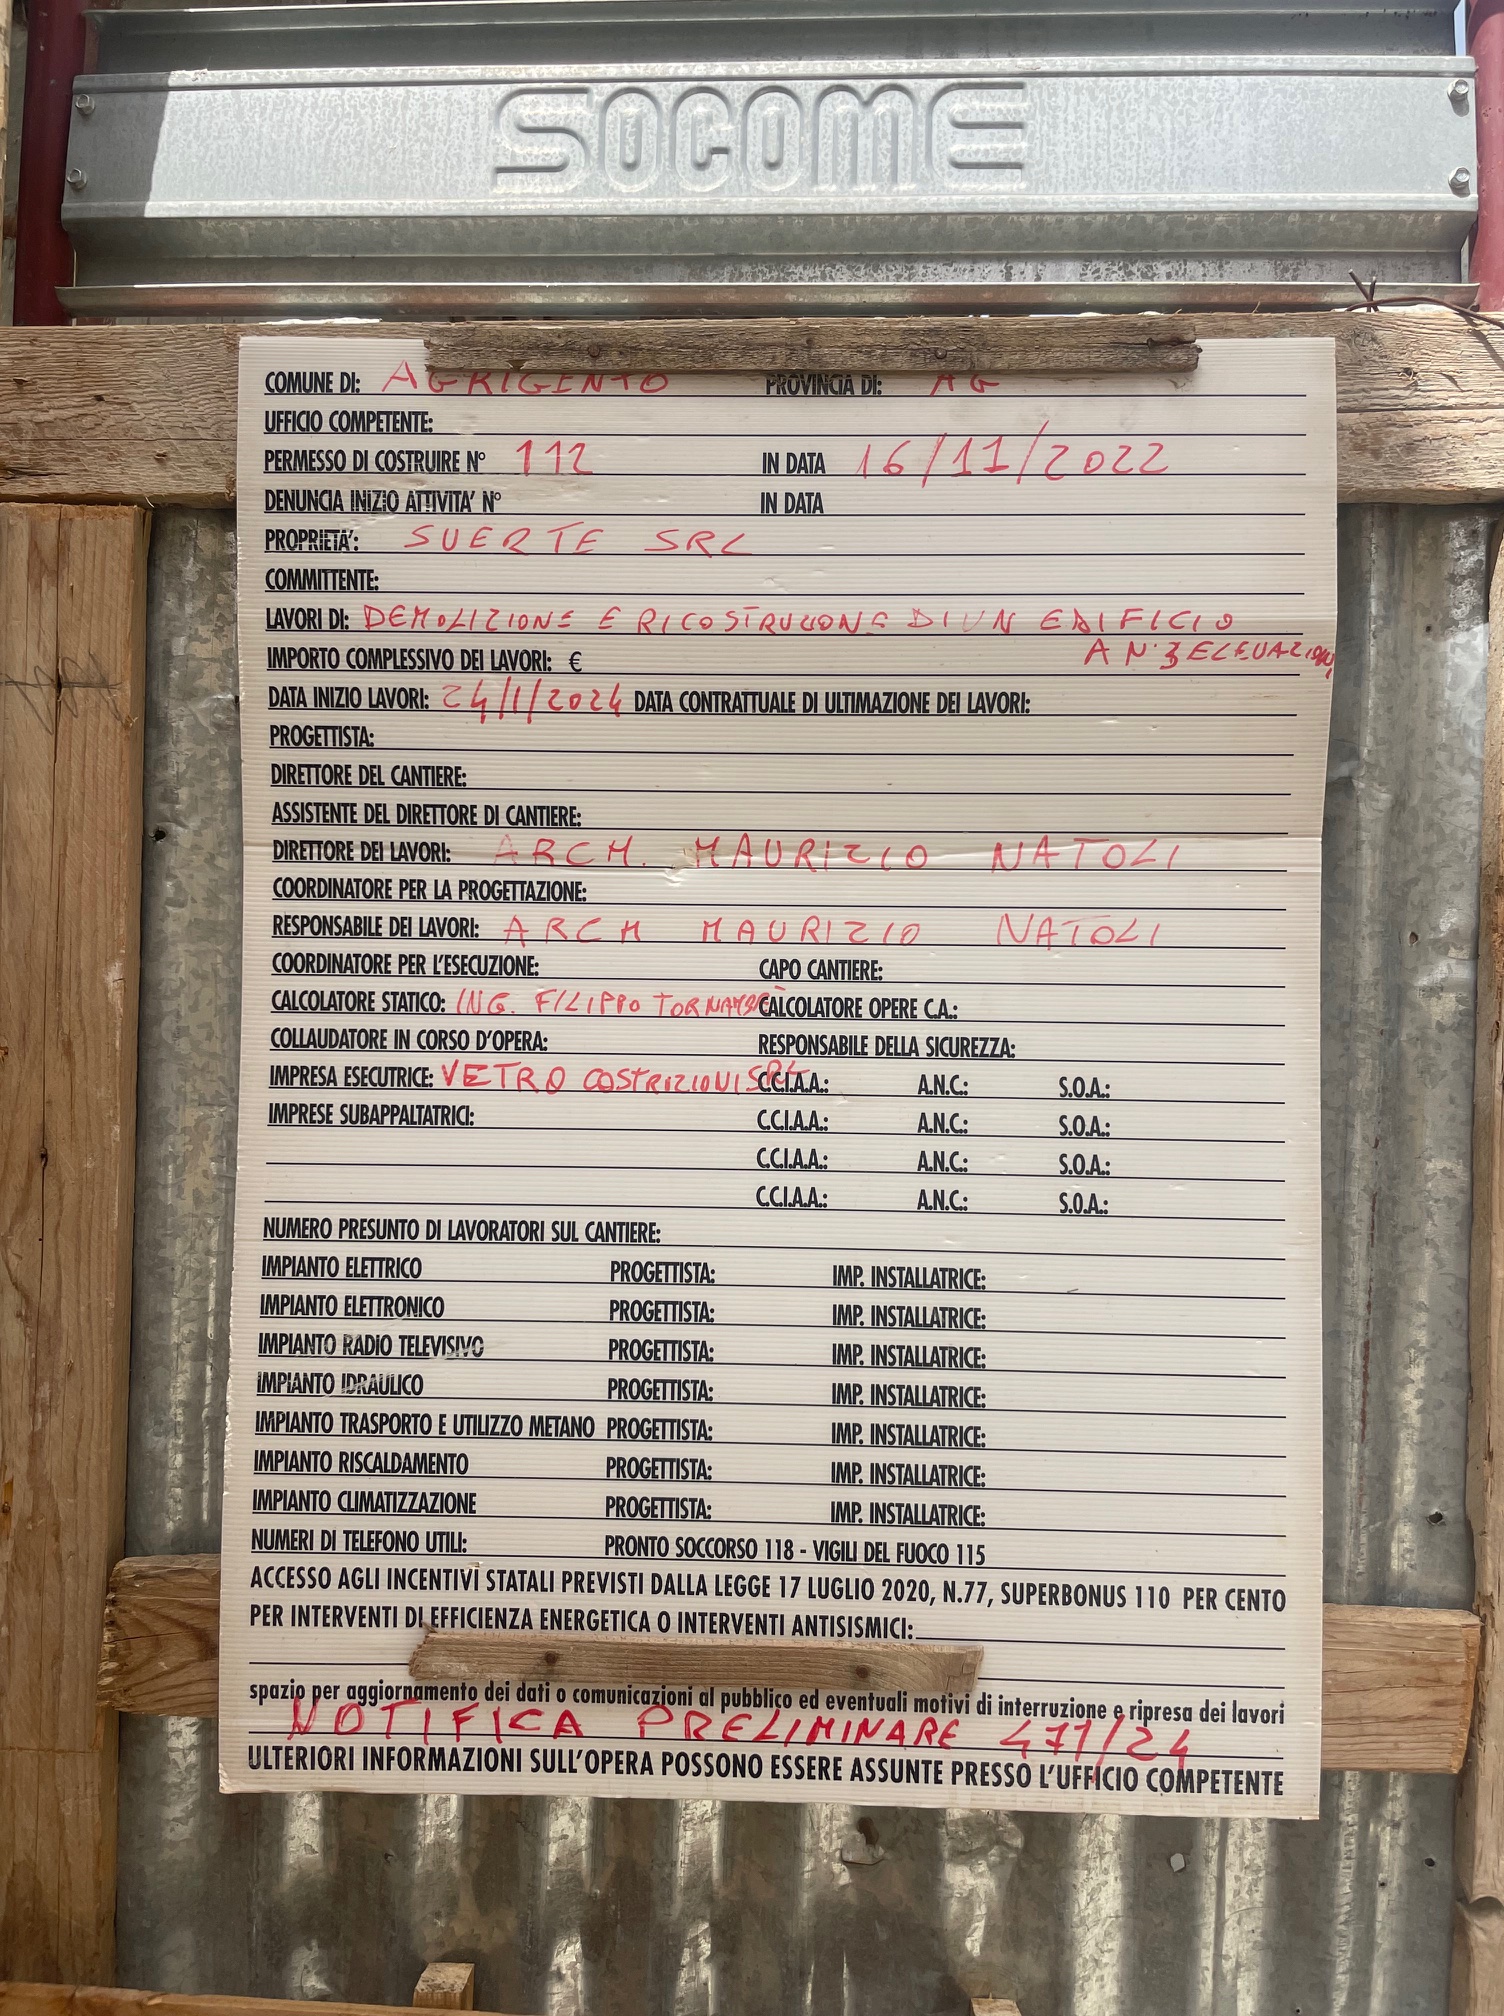 SOCOME
COMUNE DI: AGRIGENTO PROVINCIA DI: AG
UFFICIO COMPETENTE:
PERMESSO DI COSTRUIRE N° 112 IN DATA 16/11/2022
DENUNCIA INIZIO ATTIVITA' N° IN DATA
PROPRIETA': SUERTE SRL
COMMITTENTE:
LAVORI DI: DEMOLIZIONE E RICOSTRUZIONE DI UN EDIFICIO
A N. 3 ELEVAZIONI
IMPORTO COMPLESSIVO DEI LAVORI: €
DATA INIZIO LAVORI: 24/1/2024 DATA CONTRATTUALE DI ULTIMAZIONE DEI LAVORI:
PROGETTISTA:
DIRETTORE DEL CANTIERE:
ASSISTENTE DEL DIRETTORE DI CANTIERE:
DIRETTORE DEI LAVORI: ARCH. MAURIZIO NATOLI
COORDINATORE PER LA PROGETTAZIONE:
RESPONSABILE DEI LAVORI: ARCH MAURIZIO NATOLI
COORDINATORE PER L'ESECUZIONE: CAPO CANTIERE:
CALCOLATORE STATICO: ING. FILIPPO TORNAMBÈ CALCOLATORE OPERE C.A.:
COLLAUDATORE IN CORSO D'OPERA: RESPONSABILE DELLA SICUREZZA:
IMPRESA ESECUTRICE: VETRO COSTRIZIONI SRL C.C.I.A.A.: A.N.C.: S.O.A.:
IMPRESE SUBAPPALTATRICI: C.C.I.A.A.: A.N.C.: S.O.A.:
C.C.I.A.A.: A.N.C.: S.O.A.:
C.C.I.A.A.: A.N.C.: S.O.A.:
NUMERO PRESUNTO DI LAVORATORI SUL CANTIERE:
IMPIANTO ELETTRICO PROGETTISTA: IMP. INSTALLATRICE:
IMPIANTO ELETTRONICO PROGETTISTA: IMP. INSTALLATRICE:
IMPIANTO RADIO TELEVISIVO PROGETTISTA: IMP. INSTALLATRICE:
IMPIANTO IDRAULICO PROGETTISTA: IMP. INSTALLATRICE:
IMPIANTO TRASPORTO E UTILIZZO METANO PROGETTISTA: IMP. INSTALLATRICE:
IMPIANTO RISCALDAMENTO PROGETTISTA: IMP. INSTALLATRICE:
IMPIANTO CLIMATIZZAZIONE PROGETTISTA: IMP. INSTALLATRICE:
NUMERI DI TELEFONO UTILI: PRONTO SOCCORSO 118 - VIGILI DEL FUOCO 115
ACCESSO AGLI INCENTIVI STATALI PREVISTI DALLA LEGGE 17 LUGLIO 2020, N.77, SUPERBONUS 110 PER CENTO
PER INTERVENTI DI EFFICIENZA ENERGETICA O INTERVENTI ANTISISMICI:
spazio per aggiornamento dei dati o comunicazioni al pubblico ed eventuali motivi di interruzione e ripresa dei lavori
NOTIFICA PRELIMINARE 471/24
ULTERIORI INFORMAZIONI SULL'OPERA POSSONO ESSERE ASSUNTE PRESSO L'UFFICIO COMPETENTE